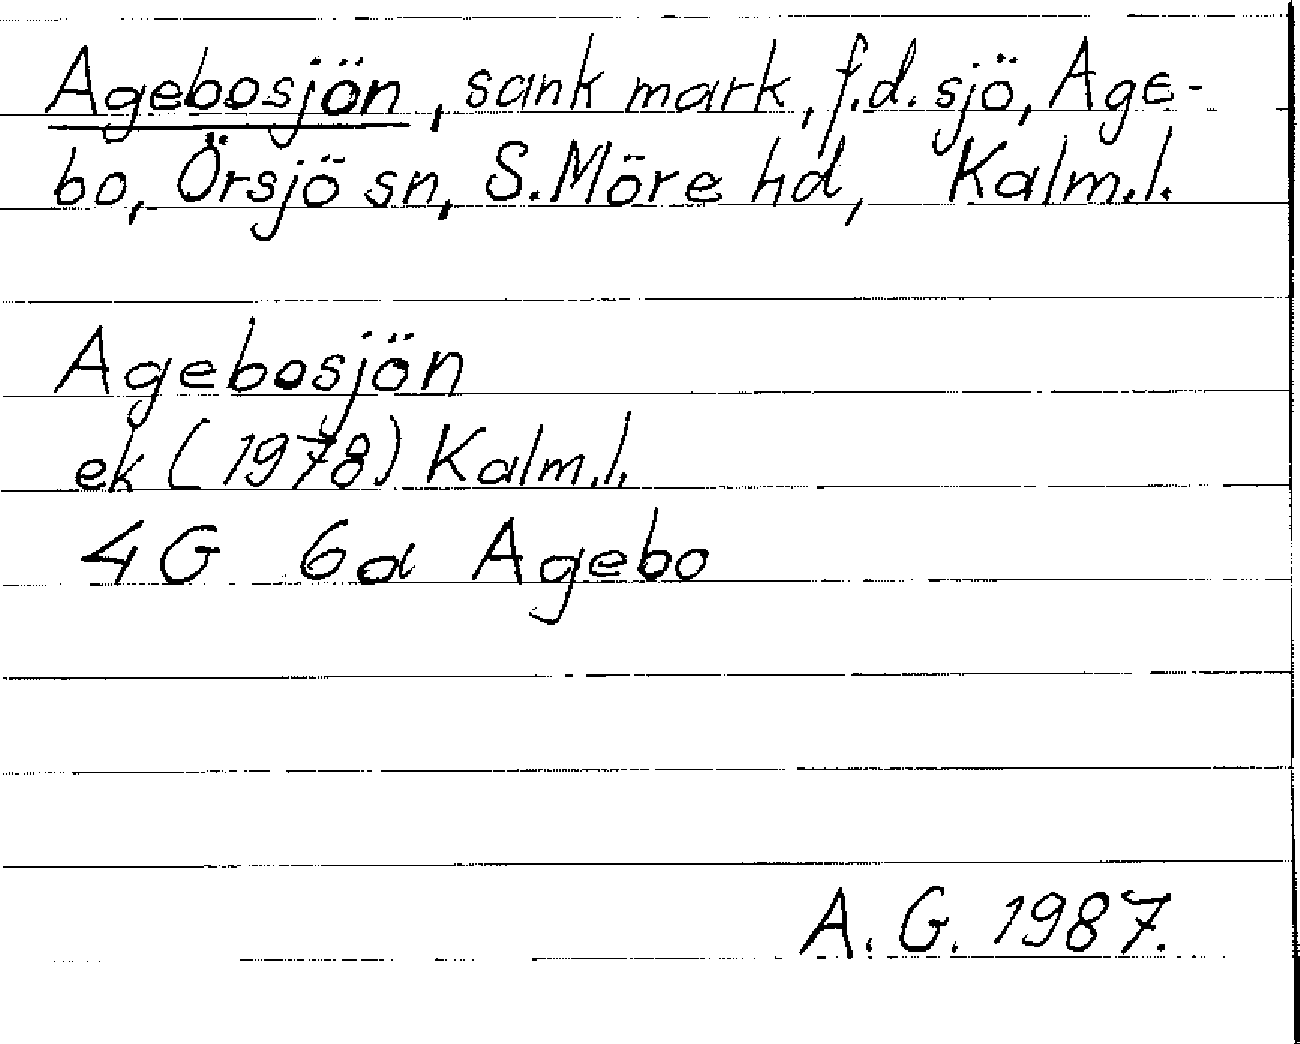 Agebosjön, sank mark, f.d. sjö, Age-
bo, Örsjö sn, S. Möre hd, Kalm.l.
Agebosjön
ek (1978) Kalm.l.
4G 6a Agebo
A. G. 1987.